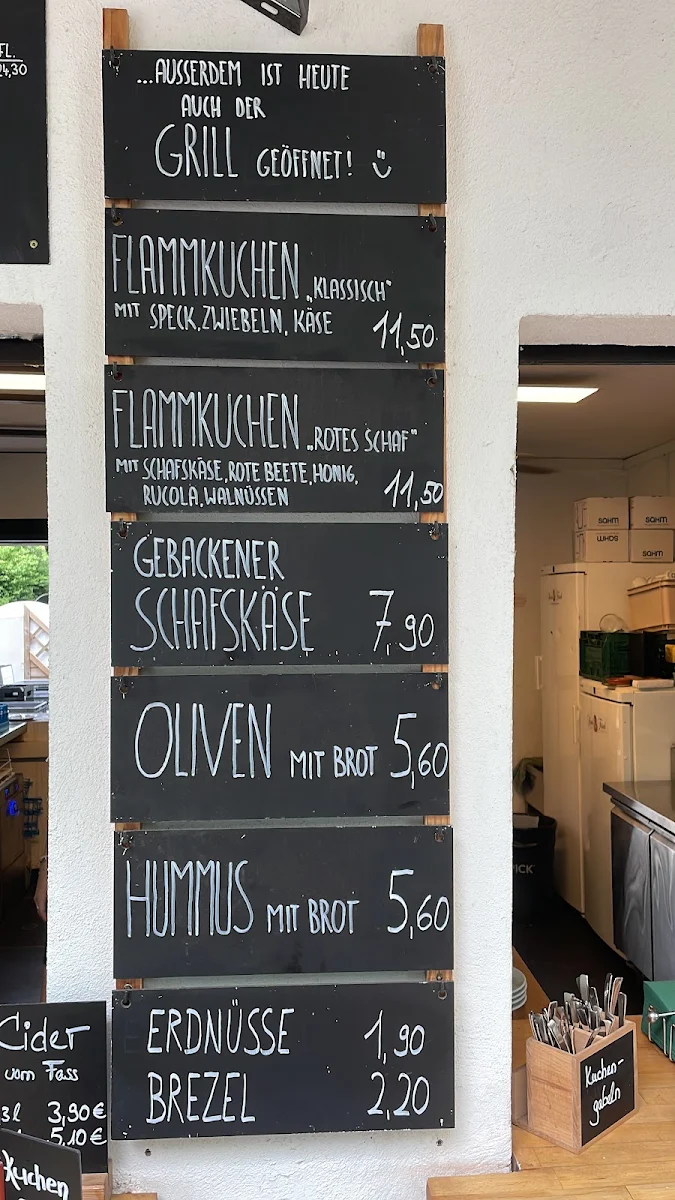 FL.
24,30
...AUSSERDEM IST HEUTE
AUCH DER
GRILL GEÖFFNET!
FLAMMKUCHEN „KLASSISCH“
MIT SPECK, ZWIEBELN, KÄSE 11,50
FLAMMKUCHEN „ROTES SCHAF“
MIT SCHAFSKÄSE, ROTE BEETE, HONIG,
RUCOLA, WALNÜSSEN 11,50
GEBACKENER
SCHAFSKÄSE 7,90
OLIVEN MIT BROT 5,60
HUMMUS MIT BROT 5,60
ERDNÜSSE 1,90
BREZEL 2,20
Cider
vom Fass
3l 3,90€
5,10€
Kuchen
Kuchen-
gabeln
SAHM
SAHM
SAHM
SAHM
PICK